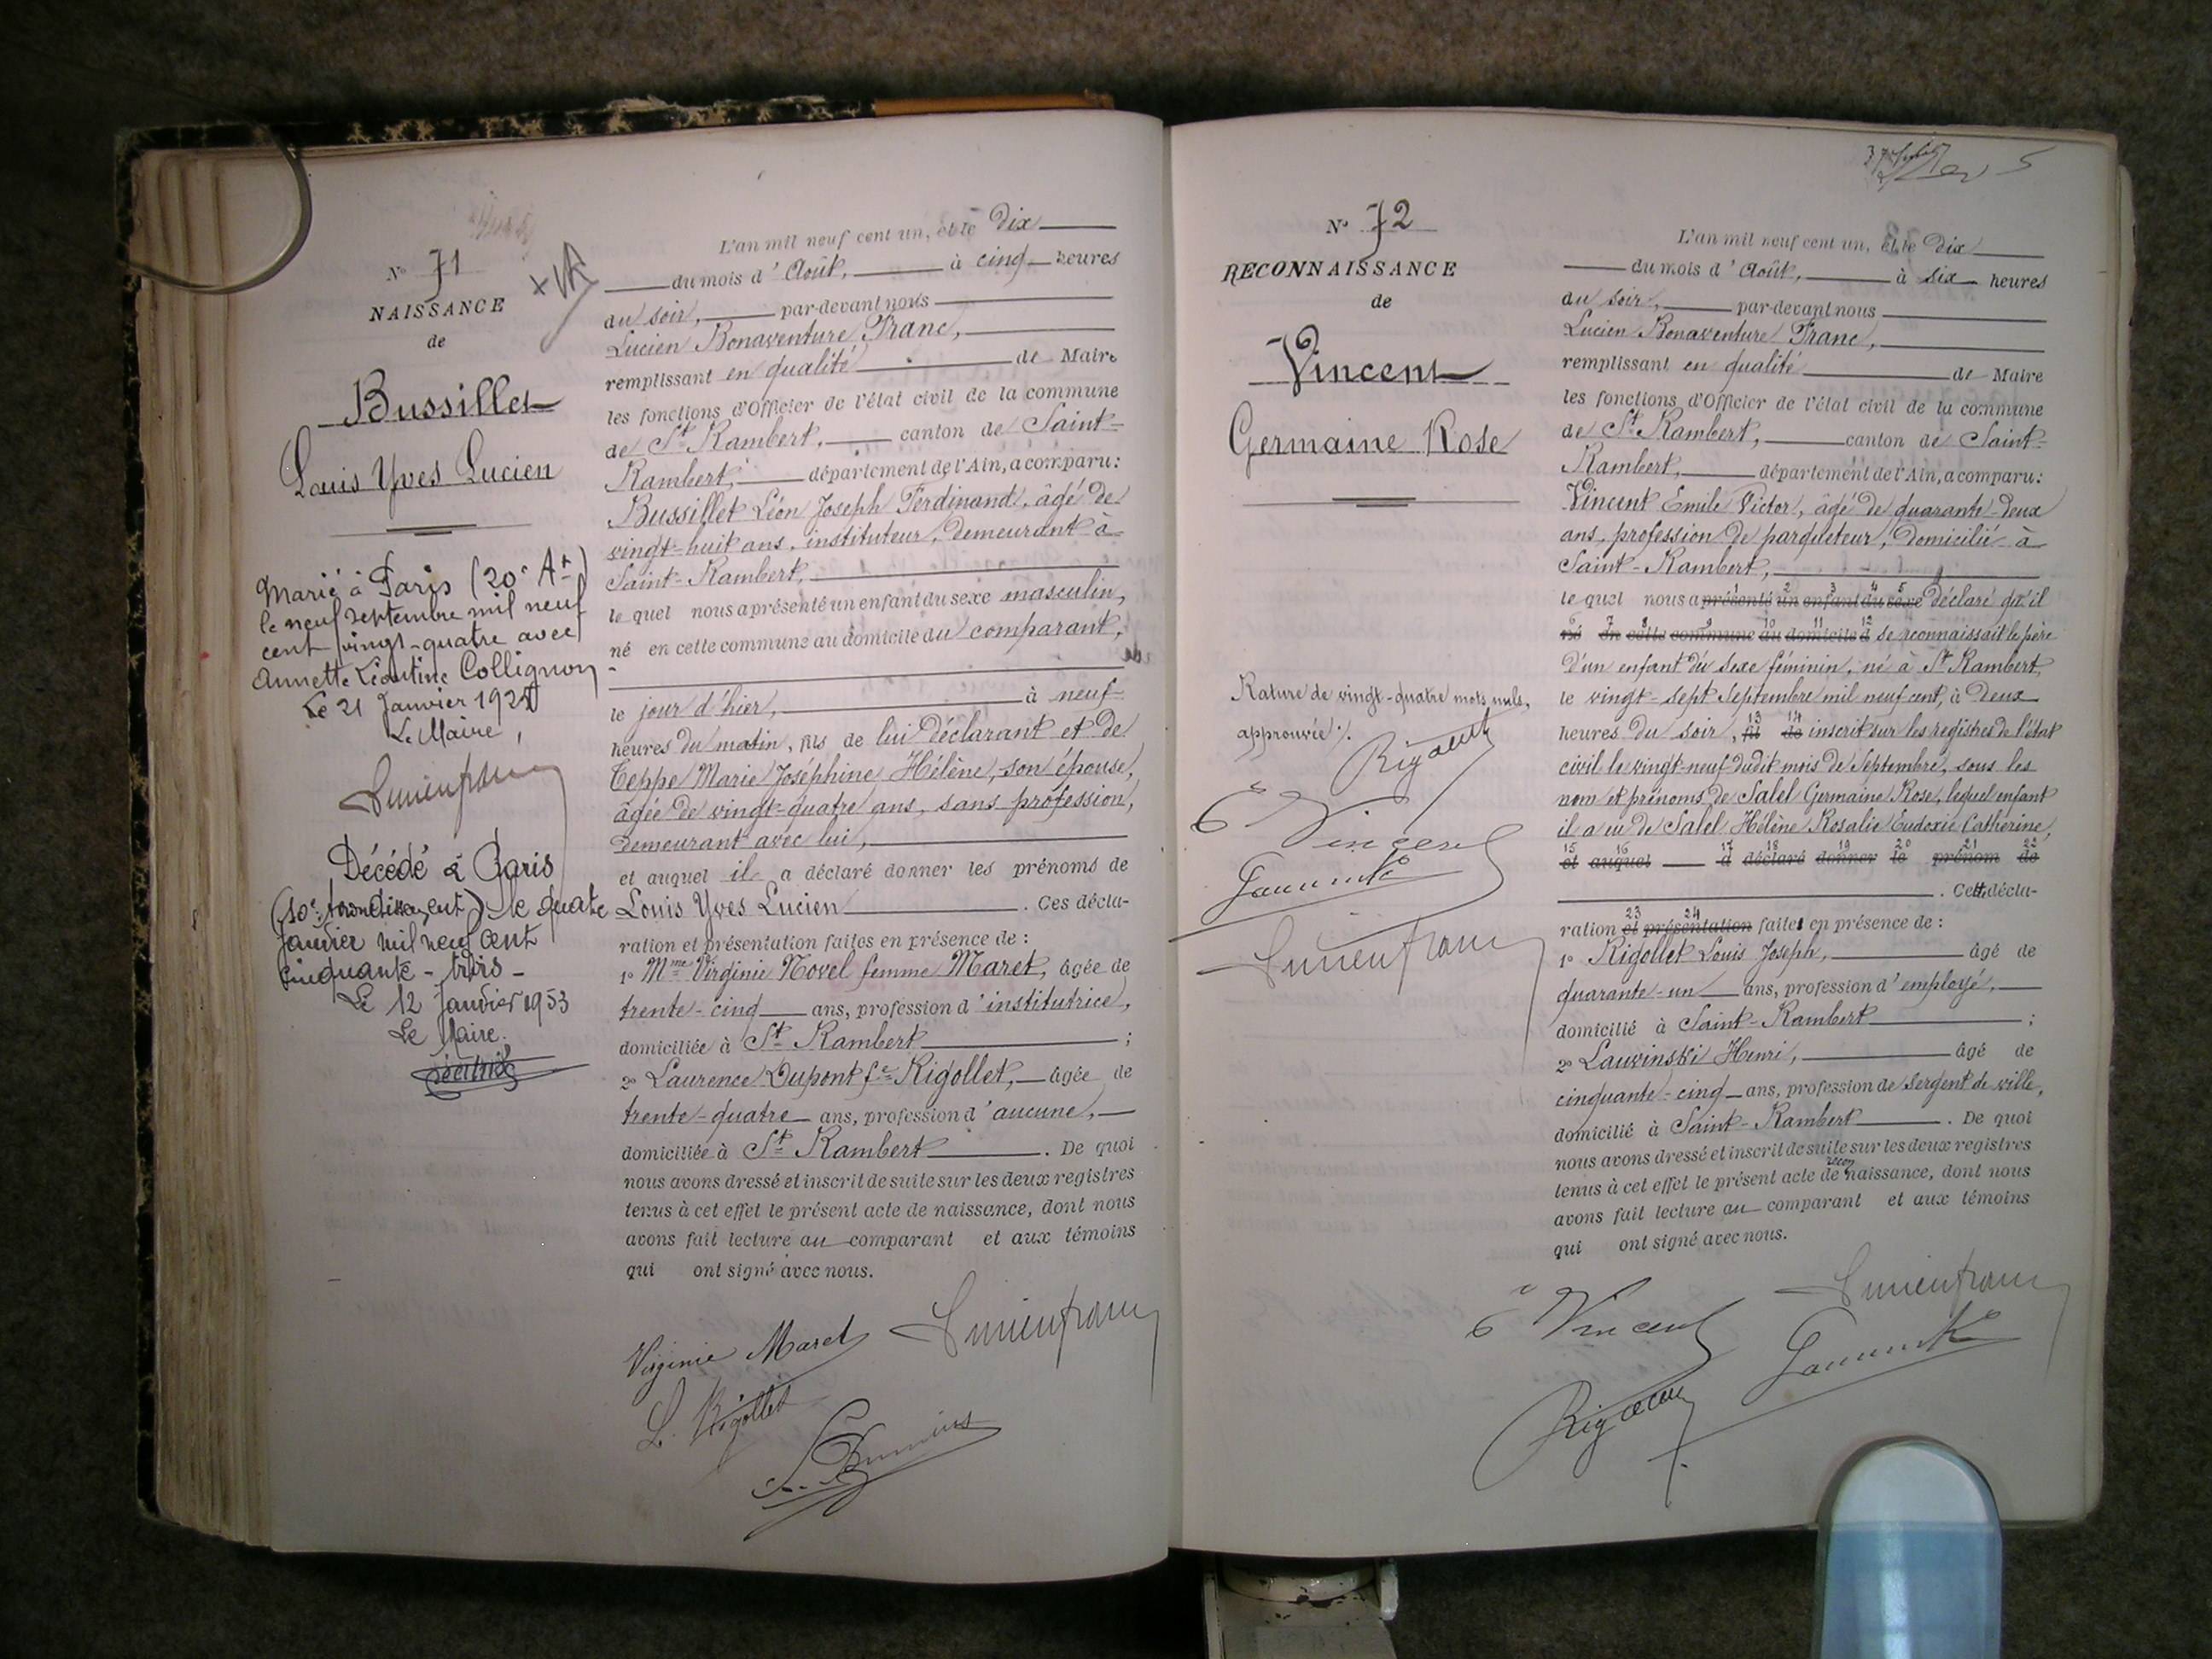 N° 71
NAISSANCE
de
Bussillet
Louis Yves Lucien
Marié à Paris (20e Art)
le neuf Septembre mil neuf
cent vingt-quatre avec
Annette Léontine Collignon
Le 21 Janvier 192
Le Maire,
Lucien franc
Décédé à Paris
(10e Arrondissement) le quatre
janvier mil neuf cent
cinquante-trois-
Le 12 Janvier 1953
Le Maire.
L'an mil neuf cent un, et le Dix
du mois d'Août, à cinq heures
du soir, par-devant nous
Lucien Bonaventure Franc,
remplissant en qualité de Maire
les fonctions d'Officier de l'état civil de la commune
de St Rambert, canton de Saint-
Rambert, département de l'Ain, a comparu:
Bussillet Léon Joseph Ferdinand, âgé de
vingt-huit ans, instituteur, demeurant à
Saint-Rambert,
le quel nous a présenté un enfant du sexe masculin,
né en cette commune au domicile du comparant,
le jour d'hier, à neuf
heures du matin, fils de lui déclarant et de
Teppe Marie Joséphine Hélène, son épouse,
âgée de vingt-quatre ans, sans profession,
demeurant avec lui,
et auquel il a déclaré donner les prénoms de
Louis Yves Lucien. Ces décla-
ration et présentation faites en présence de :
1° Mme Virginie Novel femme Maret, âgée de
trente-cinq ans, profession d'institutrice,
domiciliée à St Rambert ;
2° Laurence Dupont fe Rigollet, âgée de
trente-quatre ans, profession d'aucune,
domiciliée à St Rambert. De quoi
nous avons dressé et inscrit de suite sur les deux registres
tenus à cet effet le présent acte de naissance, dont nous
avons fait lecture au comparant et aux témoins
qui ont signé avec nous.
Virginie Maret Lucien franc
L. Rigollet
N° 72
RECONNAISSANCE
de
Vincent
Germaine Rose
Rature de vingt-quatre mots nuls,
approuvée ./.
Vincent
Lucien franc
L'an mil neuf cent un, et le Dix
du mois d'Août, à six heures
du soir, par-devant nous
Lucien Bonaventure Franc,
remplissant en qualité de Maire
les fonctions d'Officier de l'état civil de la commune
de St Rambert, canton de Saint-
Rambert, département de l'Ain, a comparu:
Vincent Emile Victor, âgé de quarante-deux
ans, profession de parqueteur, domicilié à
Saint-Rambert,
1 2 3 4 5
le quel nous a présenté un enfant du sexe déclaré qu'il
6 7 8 9 10 11 12
né en cette commune au domicile d se reconnaissait le père
d'un enfant du sexe féminin, né à St Rambert,
le vingt-sept Septembre mil neuf cent, à deux
13 14
heures du soir, fil de inscrit sur les registres de l'état
civil le vingt-neuf dudit mois de Septembre, sous les
nom et prénoms de Salel Germaine Rose, lequel enfant
il a eu de Salel Hélène Rosalie Eudoxie Catherine,
15 16 17 18 19 20 21 22
et auquel a déclaré donner le prénom de
. Cette décla-
23 24
ration et présentation faite en présence de :
1° Rigollet Louis Joseph, âgé de
quarante-un ans, profession d'employé,
domicilié à Saint-Rambert ;
2° Lauvinski Henri, âgé de
cinquante-cinq ans, profession de sergent de ville,
domicilié à Saint-Rambert. De quoi
nous avons dressé et inscrit de suite sur les deux registres
recon
tenus à cet effet le présent acte de naissance, dont nous
avons fait lecture au comparant et aux témoins
qui ont signé avec nous.
Vincent Lucien franc